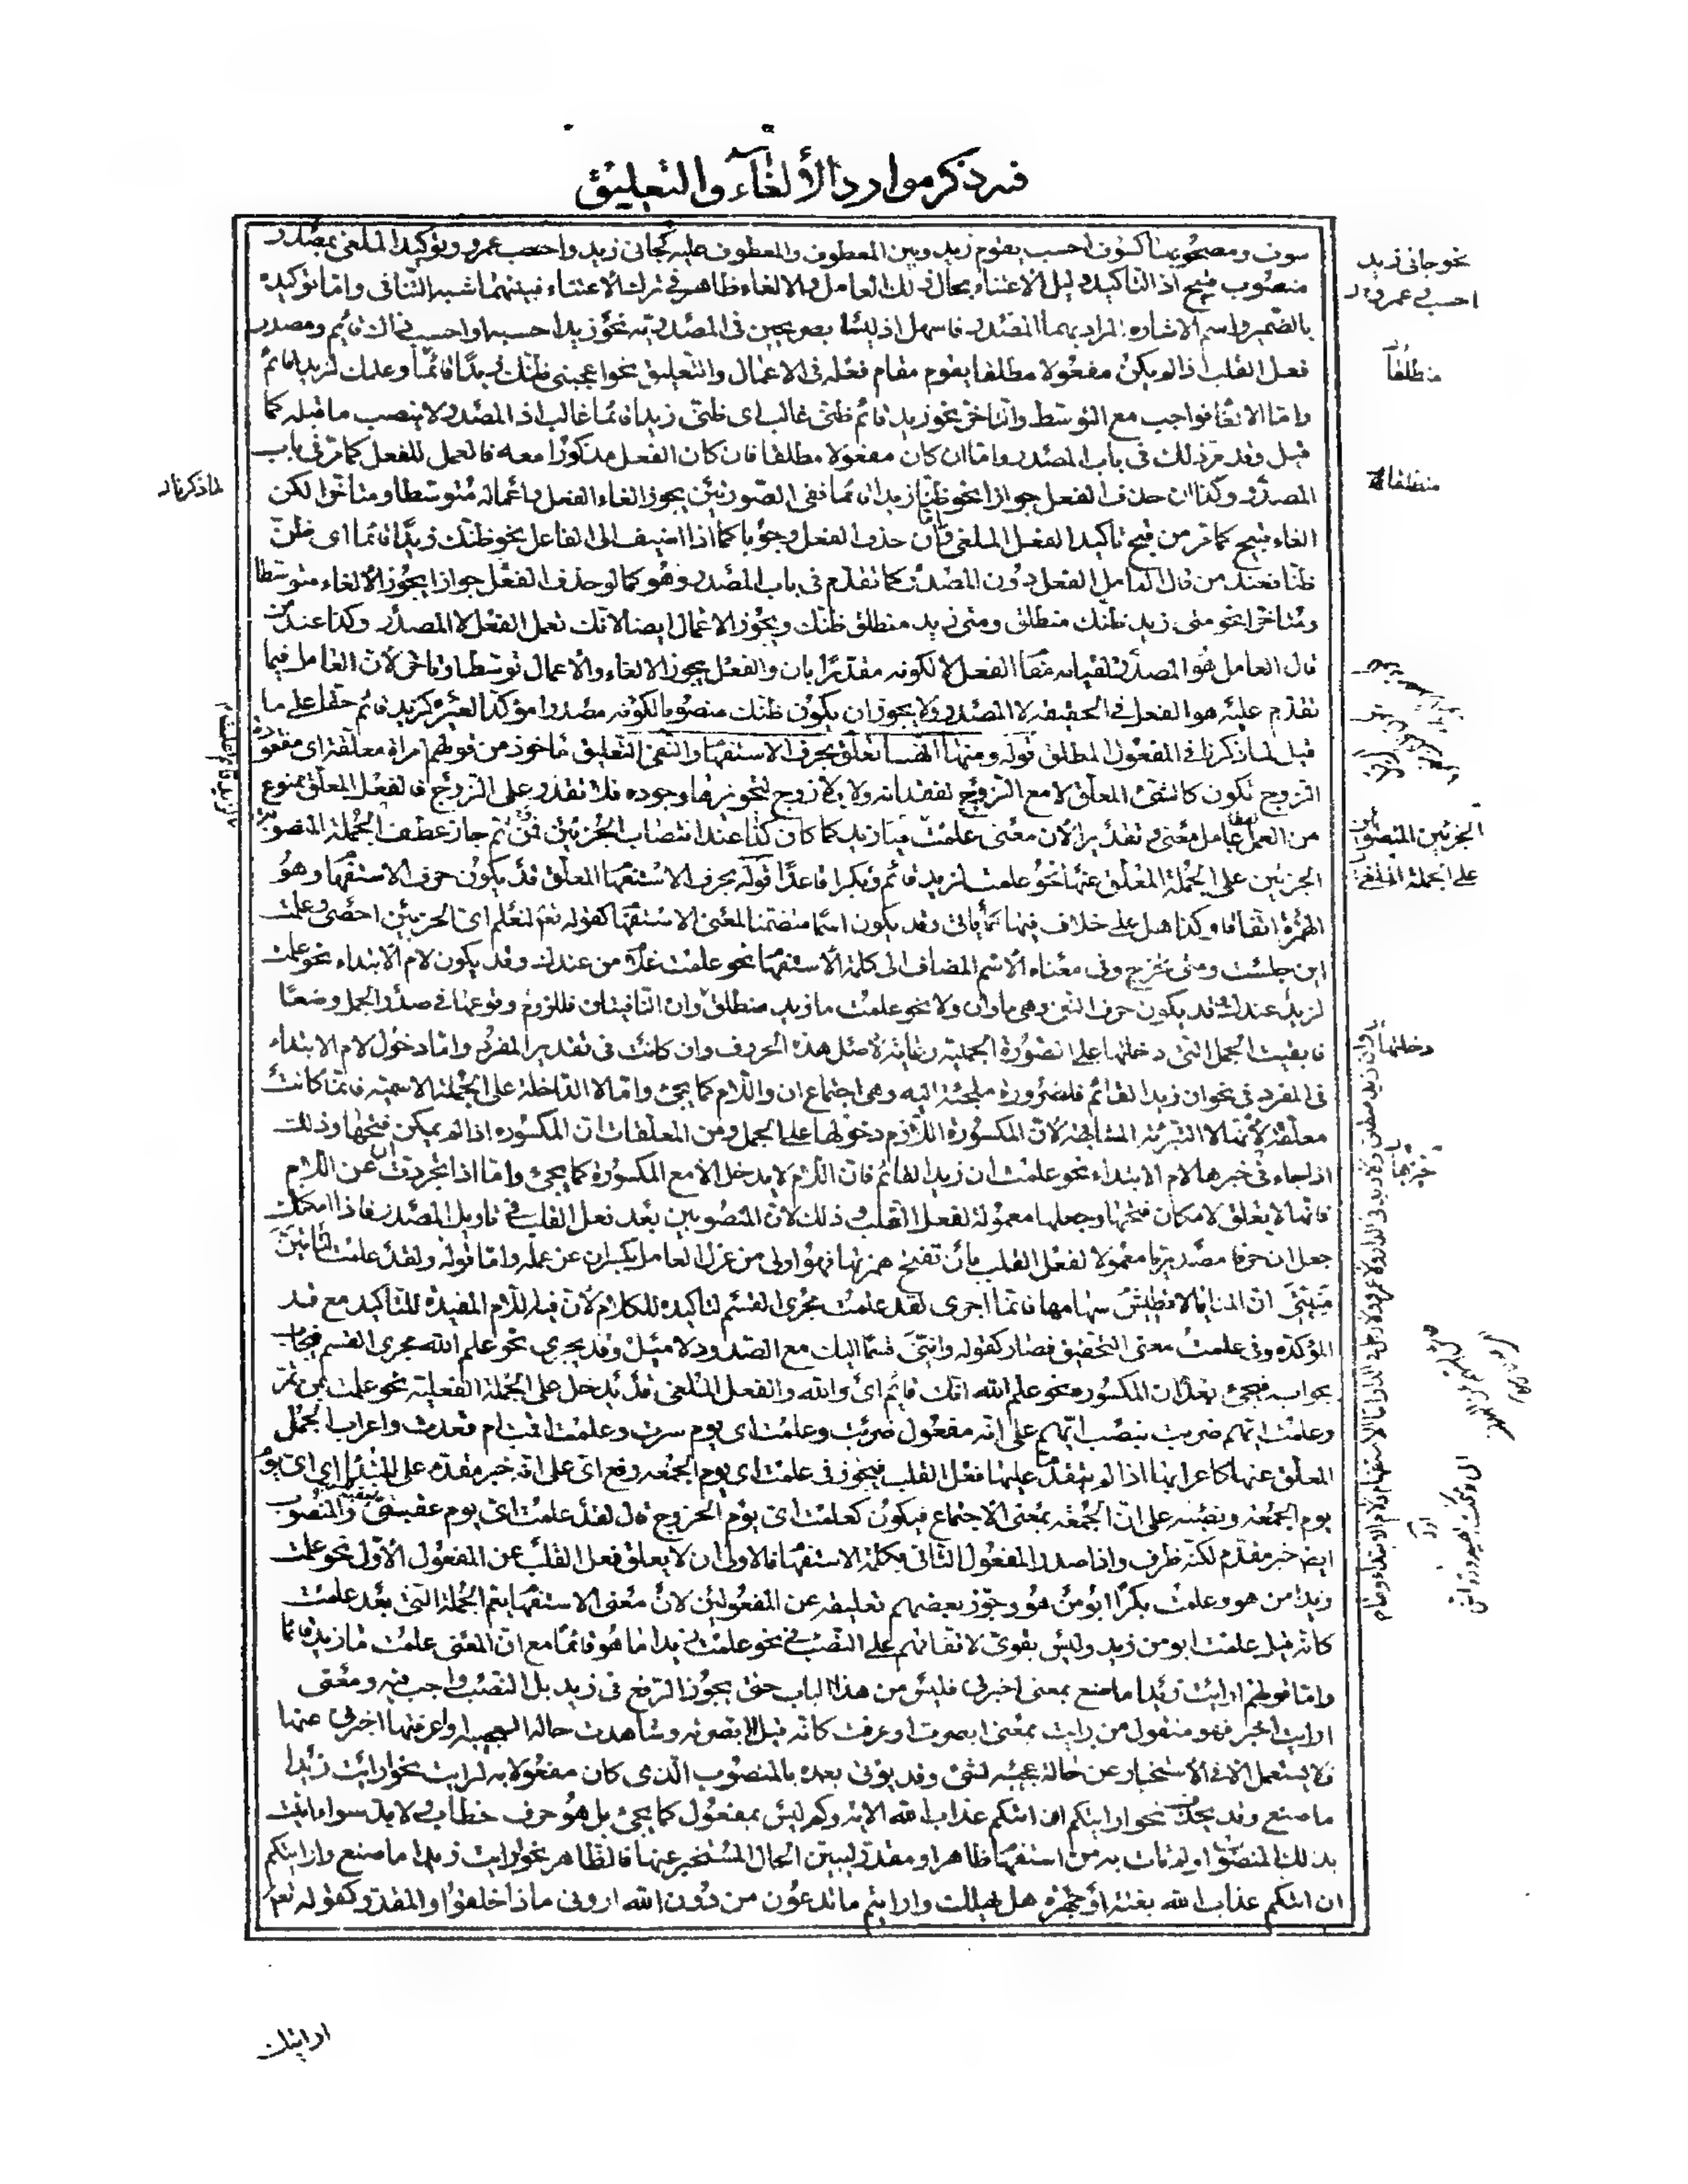 في ذكر موارد الألغاء والتعليق
سوف ومصحوبها كسوف احسب يقوم زيد وبين المعطوف والمعطوف عليه كجائني زيد واحسب عمرو وتوكيد الملغى بمصدر
منصوب قبيح اذ التاكيد دليل الاعتناء بحال ذلك العامل والالغاء ظاهر في ترك الاعتناء فبينهما شبه التنافي واما توكيده
بالضمير واسم الاشارة المراد بهما المصدر فاسهل اذ ليسا بصريحين في المصدرية نحو زيد احسبه او احسب ذاك قائم ومصدر
فعل القلب اذا لم يكن مفعولا مطلقا يقوم مقام فعله في الاعمال والتعليق نحو اعجبني ظنك زيدا قائما وعلمك لزيد قائم
واما الالغاء فواجب مع التوسط والتاخر نحو زيد قائم ظني غالب اى ظني زيدا قائما غالب اذ المصدر لا ينصب ما قبله كما
قيل وقد مر ذلك في باب المصدر واما ان كان مفعولا مطلقا فان كان الفعل مذكورا معه فالعمل للفعل كما مر في باب
المصدر وكذا ان حذف الفعل جوازا نحو ظنا زيدا قائما ففي الصورتين يجوز الغاء الفعل واعماله متوسطا ومتاخرا لكن
الغاءه قبيح كما مر من قبح تاكيد الفعل الملغى وان حذف الفعل وجوبا كما اذا اضيف الى الفاعل نحو ظنك زيدا قائما اى ظن
ظنا فعند من قال العامل الفعل دون المصدر كما تقدم في باب المصدر وهو كما لو حذف الفعل جوازا يجوز الالغاء متوسطا
ومتاخرا نحو متى زيد ظنك منطلق ومتى زيد منطلق ظنك ويجوز الاعمال ايضا لانك تعمل الفعل لا المصدر وكذا عند من
قال العامل هو المصدر لقيامه مقام الفعل لا لكونه مقدرا بان والفعل يجوز الالغاء والاعمال توسط او تاخر لان العامل فيما
تقدم عليه هو الفعل في الحقيقة لا المصدر ولا يجوز ان يكون ظنك منصوبا لكونه مصدرا مؤكدا لغيره كزيد قائم حقا على ما
قيل لما ذكرنا في المفعول المطلق قوله ومنها انها تعلق بحرف الاستفهام والنفي التعليق ماخوذ من قولهم امراة معلقة اى مفقودة
الزوج تكون كالشيء المعلق لا مع الزوج لفقدانه ولا بلا زوج لتجويزها وجوده فلا تقدر على التزوج فالفعل المعلق ممنوع
من العمل لفظا عامل معنى وتقديرا لان معنى علمت لزيد قائم علمت قيام زيد كما كان كذا عند انتصاب الجزئين فمن ثم جاز عطف الجملة المنصوبة
الجزئين على الجملة المعلق عنها نحو علمت لزيد قائم وبكرا قاعدا قوله بحرف الاستفهام المعلق قد يكون حرف الاستفهام وهو
الهمزة اتفاقا وكذا هل على خلاف فيها كما ياتي وقد يكون اسما متضمنا لمعنى الاستفهام كقوله تعالى لنعلم اى الحزبين احصى وعلمت
اين جلست ومتى تخرج وفي معناه الاسم المضاف الى كلمة الاستفهام نحو علمت غلام من عندك وقد يكون لام الابتداء نحو علمت
لزيد عندك وقد يكون حرف النفي وهي ما وان ولا نحو علمت ما زيد منطلقا
فابقيت الجمل التي دخلتها على الصورة الجملية رعاية لاصل هذه الحروف وان كانت في تقدير المفرد واما دخول لام الابتداء
في المفرد في نحو ان زيدا لقائم فلضرورة ملجئة اليه وهي اجتماع ان واللام كما يجيئ واما لا الداخلة على الجملة الاسمية فانما كانت
معلقة لانها لا التبرئة المشابهة لان المكسورة اللازم دخولها على الجمل ومن المعلقات ان المكسورة اذا لم يمكن فتحها وذلك
اذا جاء في خبرها لام الابتداء نحو علمت ان زيدا لقائم فان اللام لا يدخل الا مع المكسورة كما يجيئ واما اذا تجردت ان عن اللام
فانها لا يعلق لامكان فتحها وجعلها معمولة لفعل القلب وذلك لان المنصوبين بعد فعل القلب في تاويل المصدر فاذا امكنك
جعل ان حرفا مصدريا معمولا لفعل القلب بان تفتح همزتها فهو اولى من عزل العامل بكسر ان عن عمله واما قوله ولقد علمت لتاتين
منيتي ان المنايا لا تطيش سهامها فانما اجرى لقد علمت مجرى القسم لتاكيده للكلام لان فيه اللام المفيدة للتاكيد مع قد
المؤكدة وفي علمت معنى التحقيق فصار كقوله وانني قسما اليك مع الصدود لاميل وقد يجري نحو علم الله مجرى القسم فيجاب
بجوابه فيجيئ بعده ان المكسورة نحو علم الله انك قائم اى والله والفعل الملغى قد يدخل على الجملة الفعلية نحو علمت بمن تمر
وعلمت ايهم ضربت بنصب ايهم على انه مفعول ضربت وعلمت اى يوم سرت وعلمت اقمت ام قعدت واعراب الجمل
المعلق عنها كاعرابها اذا لم يتقدم عليها فعل القلب فيجوز في علمت اى يوم الجمعة رفع اى على انه خبر مقدم على المبتدا اى اى يوم
يوم الجمعة ونصبه على ان الجمعة بمعنى الاجتماع فيكون كعلمت اى يوم الخروج قال لقد علمت اى يوم عقبتي والمنصوب
ايضا خبر مقدم لكنه ظرف واذا صدر المفعول الثاني بكلمة الاستفهام فالاولى ان لا يعلق فعل القلب عن المفعول الاول نحو علمت
زيدا من هو وعلمت بكرا ابو من هو وجوز بعضهم تعليقه عن المفعولين لان معنى الاستفهام يعم الجملة التي بعد علمت
كانه قيل علمت ابو من زيد وليس بقوي لاتفاقهم على النصب في نحو علمت زيدا ما هو قائما مع ان المعنى علمت ما زيد قائما
واما قولهم ارايت زيدا ما صنع بمعنى اخبرني فليس من هذا الباب حتى يجوز الرفع في زيد بل النصب واجب فيه ومعنى
ارايت اخبر فهو منقول من رايت بمعنى ابصرت او عرفت كانه قيل اابصرته وشاهدت حاله العجيبة او اعرفتها اخبرني عنها
فلا يستعمل الا في الاستخبار عن حالة عجيبة لشيء وقد يؤتى بعده بالمنصوب الذي كان مفعولا به لرايت نحو ارايت زيدا
ما صنع وقد يحذف نحو ارايتكم ان اتيكم عذاب الله الاية وكم ليس بمفعول كما يجيئ بل هو حرف خطاب ولا بد سواء اتيت
بذلك المنصوب او لم تات به من استفهام ظاهر او مقدر يبين الحال المستخبر عنها فالظاهر نحو ارايت زيدا ما صنع وارايتكم
ان اتيكم عذاب الله بغتة او جهرة هل يهلك وارايتم ما تدعون من دون الله اروني ماذا خلقوا والمقدر كقوله تعا
ارايتك
نحو جاني زيد
احسب عمرو
مطلقا
لما ذكرنا
الجزئين المنصوبين
على الجملة
دخلتها
خبرها